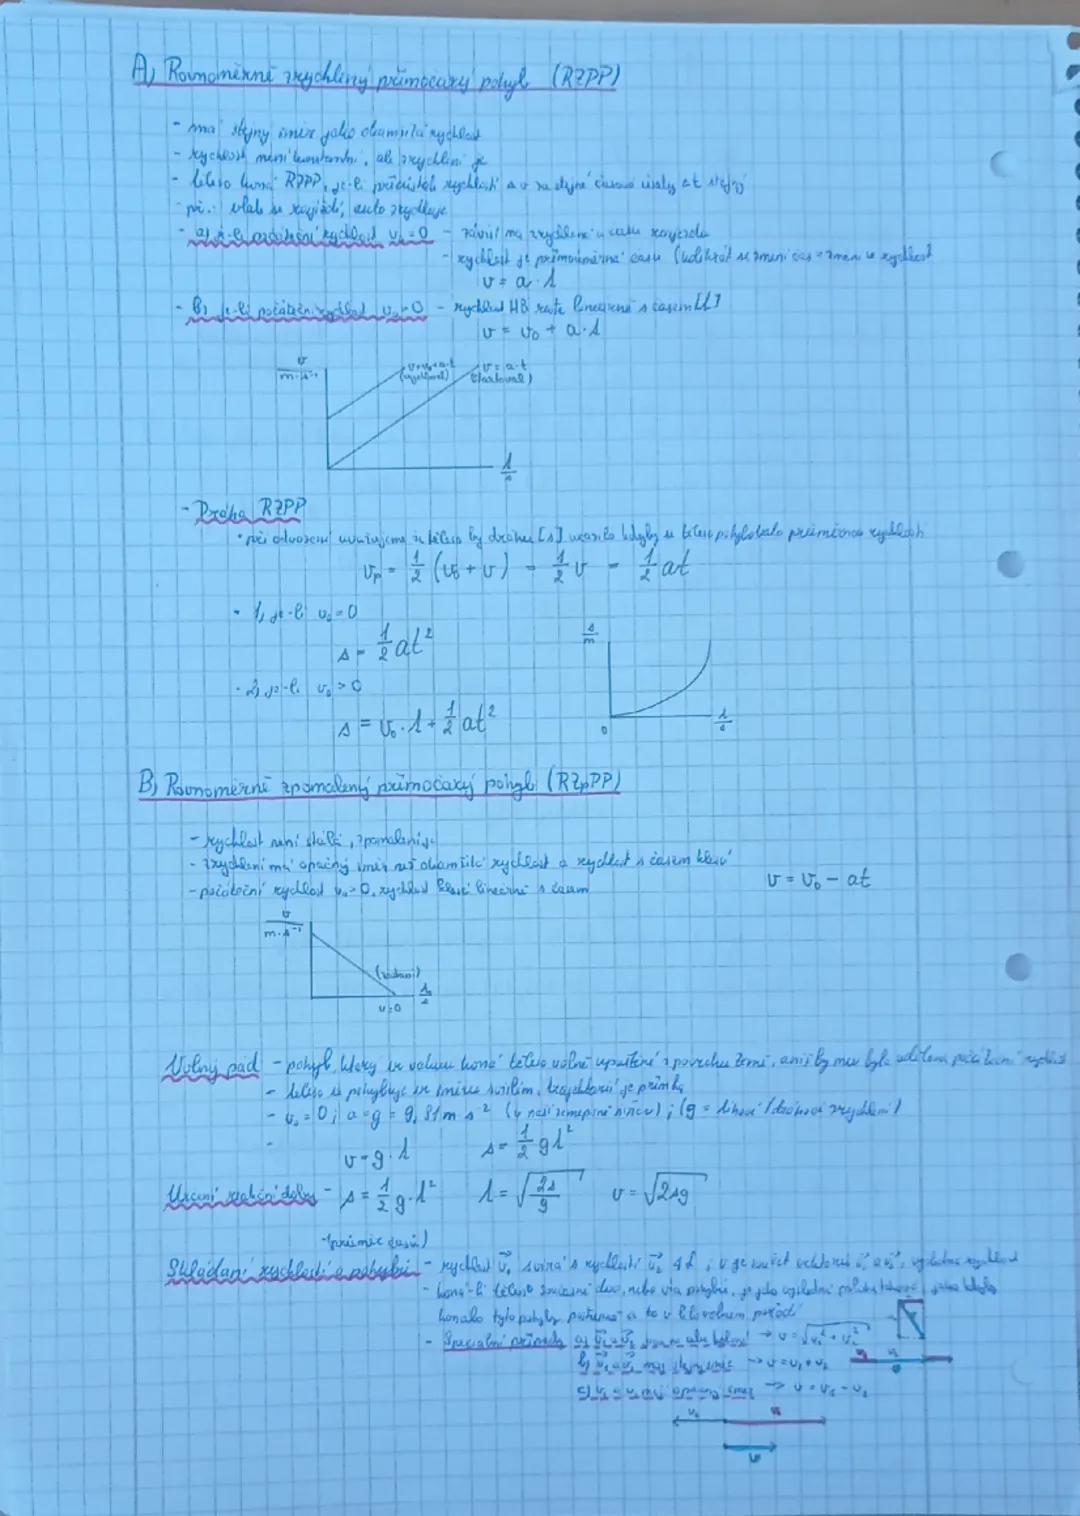 A) Rovnoměrně zrychlený přímočarý pohyb (RZPP)
- má stejný směr jako okamžitá rychlost
- rychlost není konstantní, ale zrychlení je
- těleso koná RZPP, je-li přírůstek rychlosti Δv za stejné časové úseky Δt stejný
- př.: vlak se rozjíždí, auto zrychluje
- a) je-li počáteční rychlost v₀=0 - závisí na zrychlení a času rozjezdu
- rychlost je přímoúměrná času (kolikrát se změní čas = změní se rychlost
v = a · t
- b) je-li počáteční rychlost v₀>0 - rychlost HB roste lineárně s časem [t]
v = v₀ + a·t
v
m·s⁻¹
v=v₀+a·t
v = a·t
(startoval)
t
s
- Dráha RZPP
• při odvození uvažujeme že těleso by dráhu [s] urazilo kdyby se těleso pohybovalo průměrnou rychlostí
vₚ = 1/2 (v₀ + v) = 1/2 v = 1/2 at
• 1, je-li v₀=0
s = 1/2 at²
s
m
• 2, je-li v₀ > 0
s = v₀·t + 1/2 at²
0
t
s
B) Rovnoměrně zpomalený přímočarý pohyb (RZpPP)
- rychlost není stálá, zpomalení je
- zrychlení má opačný směr než okamžitá rychlost a rychlost s časem klesá
v = v₀ - at
- počáteční rychlost v₀>0, rychlost klesá lineárně s časem
v
m·s⁻¹
t
s
v=0
Volný pád - pohyb, který ve vakuu koná těleso volně upuštěné z povrchu Země, aniž by mu byla udělena počáteční rychlost
- těleso se pohybuje ve směru svislém, trajektorií je přímka
- v₀=0; a=g = 9,81m s⁻² (v naší zeměpisné šířce); (g = tíhové zrychlení)
-
v=g·t s=1/2 gt²
Určení reakční doby - s = 1/2 g·t² t = √(2s/g) v = √2sg
Skládání rychlostí a pohybů - rychlost v⃗₁ svírá s rychlostí v⃗₂ ∢α, v je součet vektorů v⃗₁ a v⃗₂, výsledná rychlost
- koná-li těleso současně dva, nebo více pohybů, je jeho výsledná poloha taková, jako kdyby
konalo tyto pohyby postupně a to v libovolném pořadí
- Speciální případy a) v⃗₁ a v⃗₂ jsou na sebe kolmé → v = √v₁² + v₂²
b) v⃗₁ a v⃗₂ mají stejný směr → v = v₁ + v₂
c) v⃗₁ a v⃗₂ mají opačný směr → v = v₁ - v₂